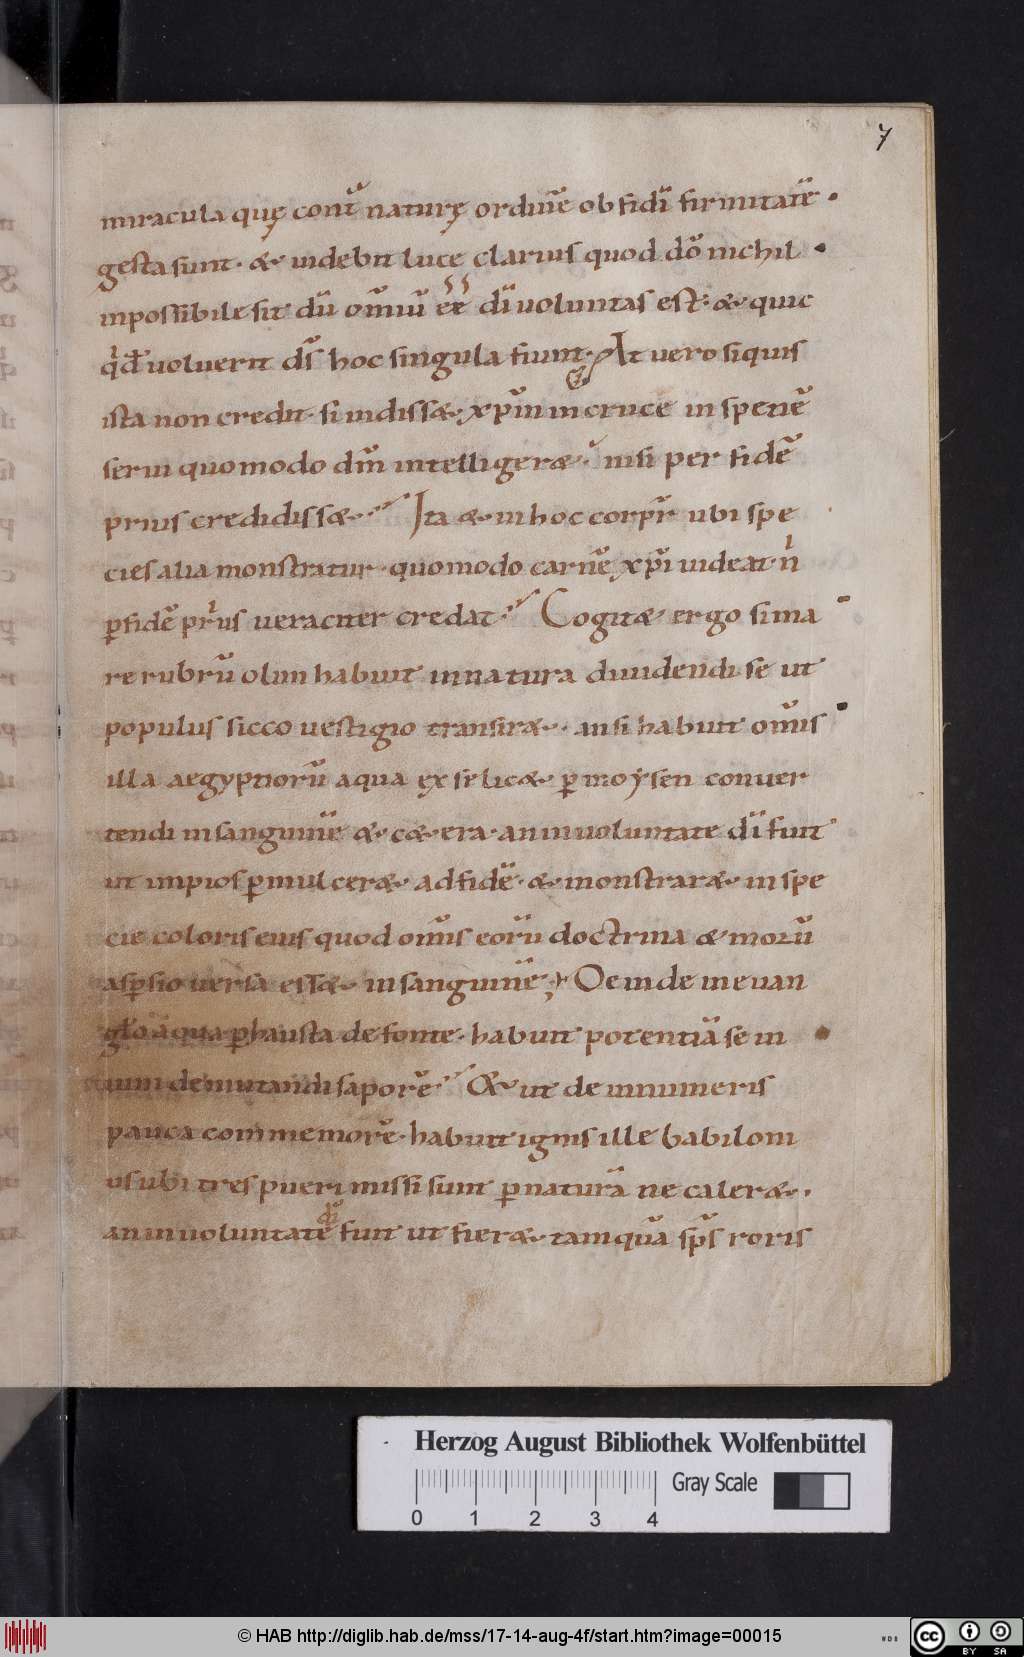 7
miracula quę cont̄ naturę ordinē ob fidi firmitatē·
gesta sunt· & uidebit luce clarius quod dō nichil
inpossibile sit dū omīū eē dī uoluntas est· & quic
qͥd uoluerit ds̄ hoc singula fiunt· At uero siquis
ista non credit· si uidiss& xp̄m in cruce in spetiē
serui quomodo dm̄ intelliger&· nisi per fidē
prius credidiss&· Ita & in hoc corpr̄ ubi spe
cies alia monstratur· quomodo carnē xp̄i uideat· nͥ
ꝑ fidē prͥus ueraciter credat· Cogit& ergo si ma
re rubrū olim habuit in natura diuidendi se ut
populus sicco uestigio transir&· aut si habuit om̄is
illa aegyptiorū aqua ex se lic& ꝑ moẏsen conuer
tendi in sanguinē & c&era· an in uoluntate dī fuit
ut impios ꝑmulcer& ad fidē· & monstrar& in spe
cie coloris eius quod om̄is eorū doctrina & morū
asꝑsio uersa ess& in sanguinē; Deinde in euan
glō aqua ꝑ hausta de fonte· habuit potentiā se in
uini demutandi saporē· & ut de innumeris
pauca commemorē· habuit ignis ille babiloni
us ubi tres pueri missi sunt ꝑ naturā ne caler&·
an in uoluntate dī fuit ut fier& tamquā sps̄ roris
Herzog August Bibliothek Wolfenbüttel
0 1 2 3 4 Gray Scale
© HAB http://diglib.hab.de/mss/17-14-aug-4f/start.htm?image=00015
WDB
cc BY SA